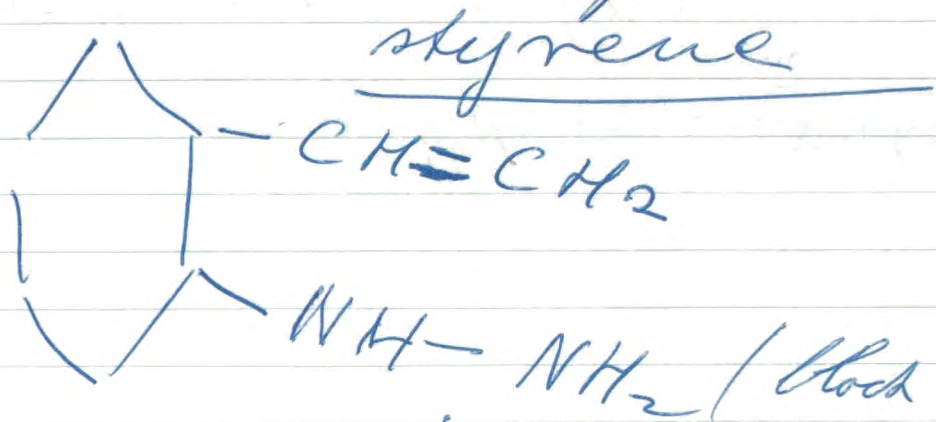 styrene
CH=CH2
NH-NH2 (block